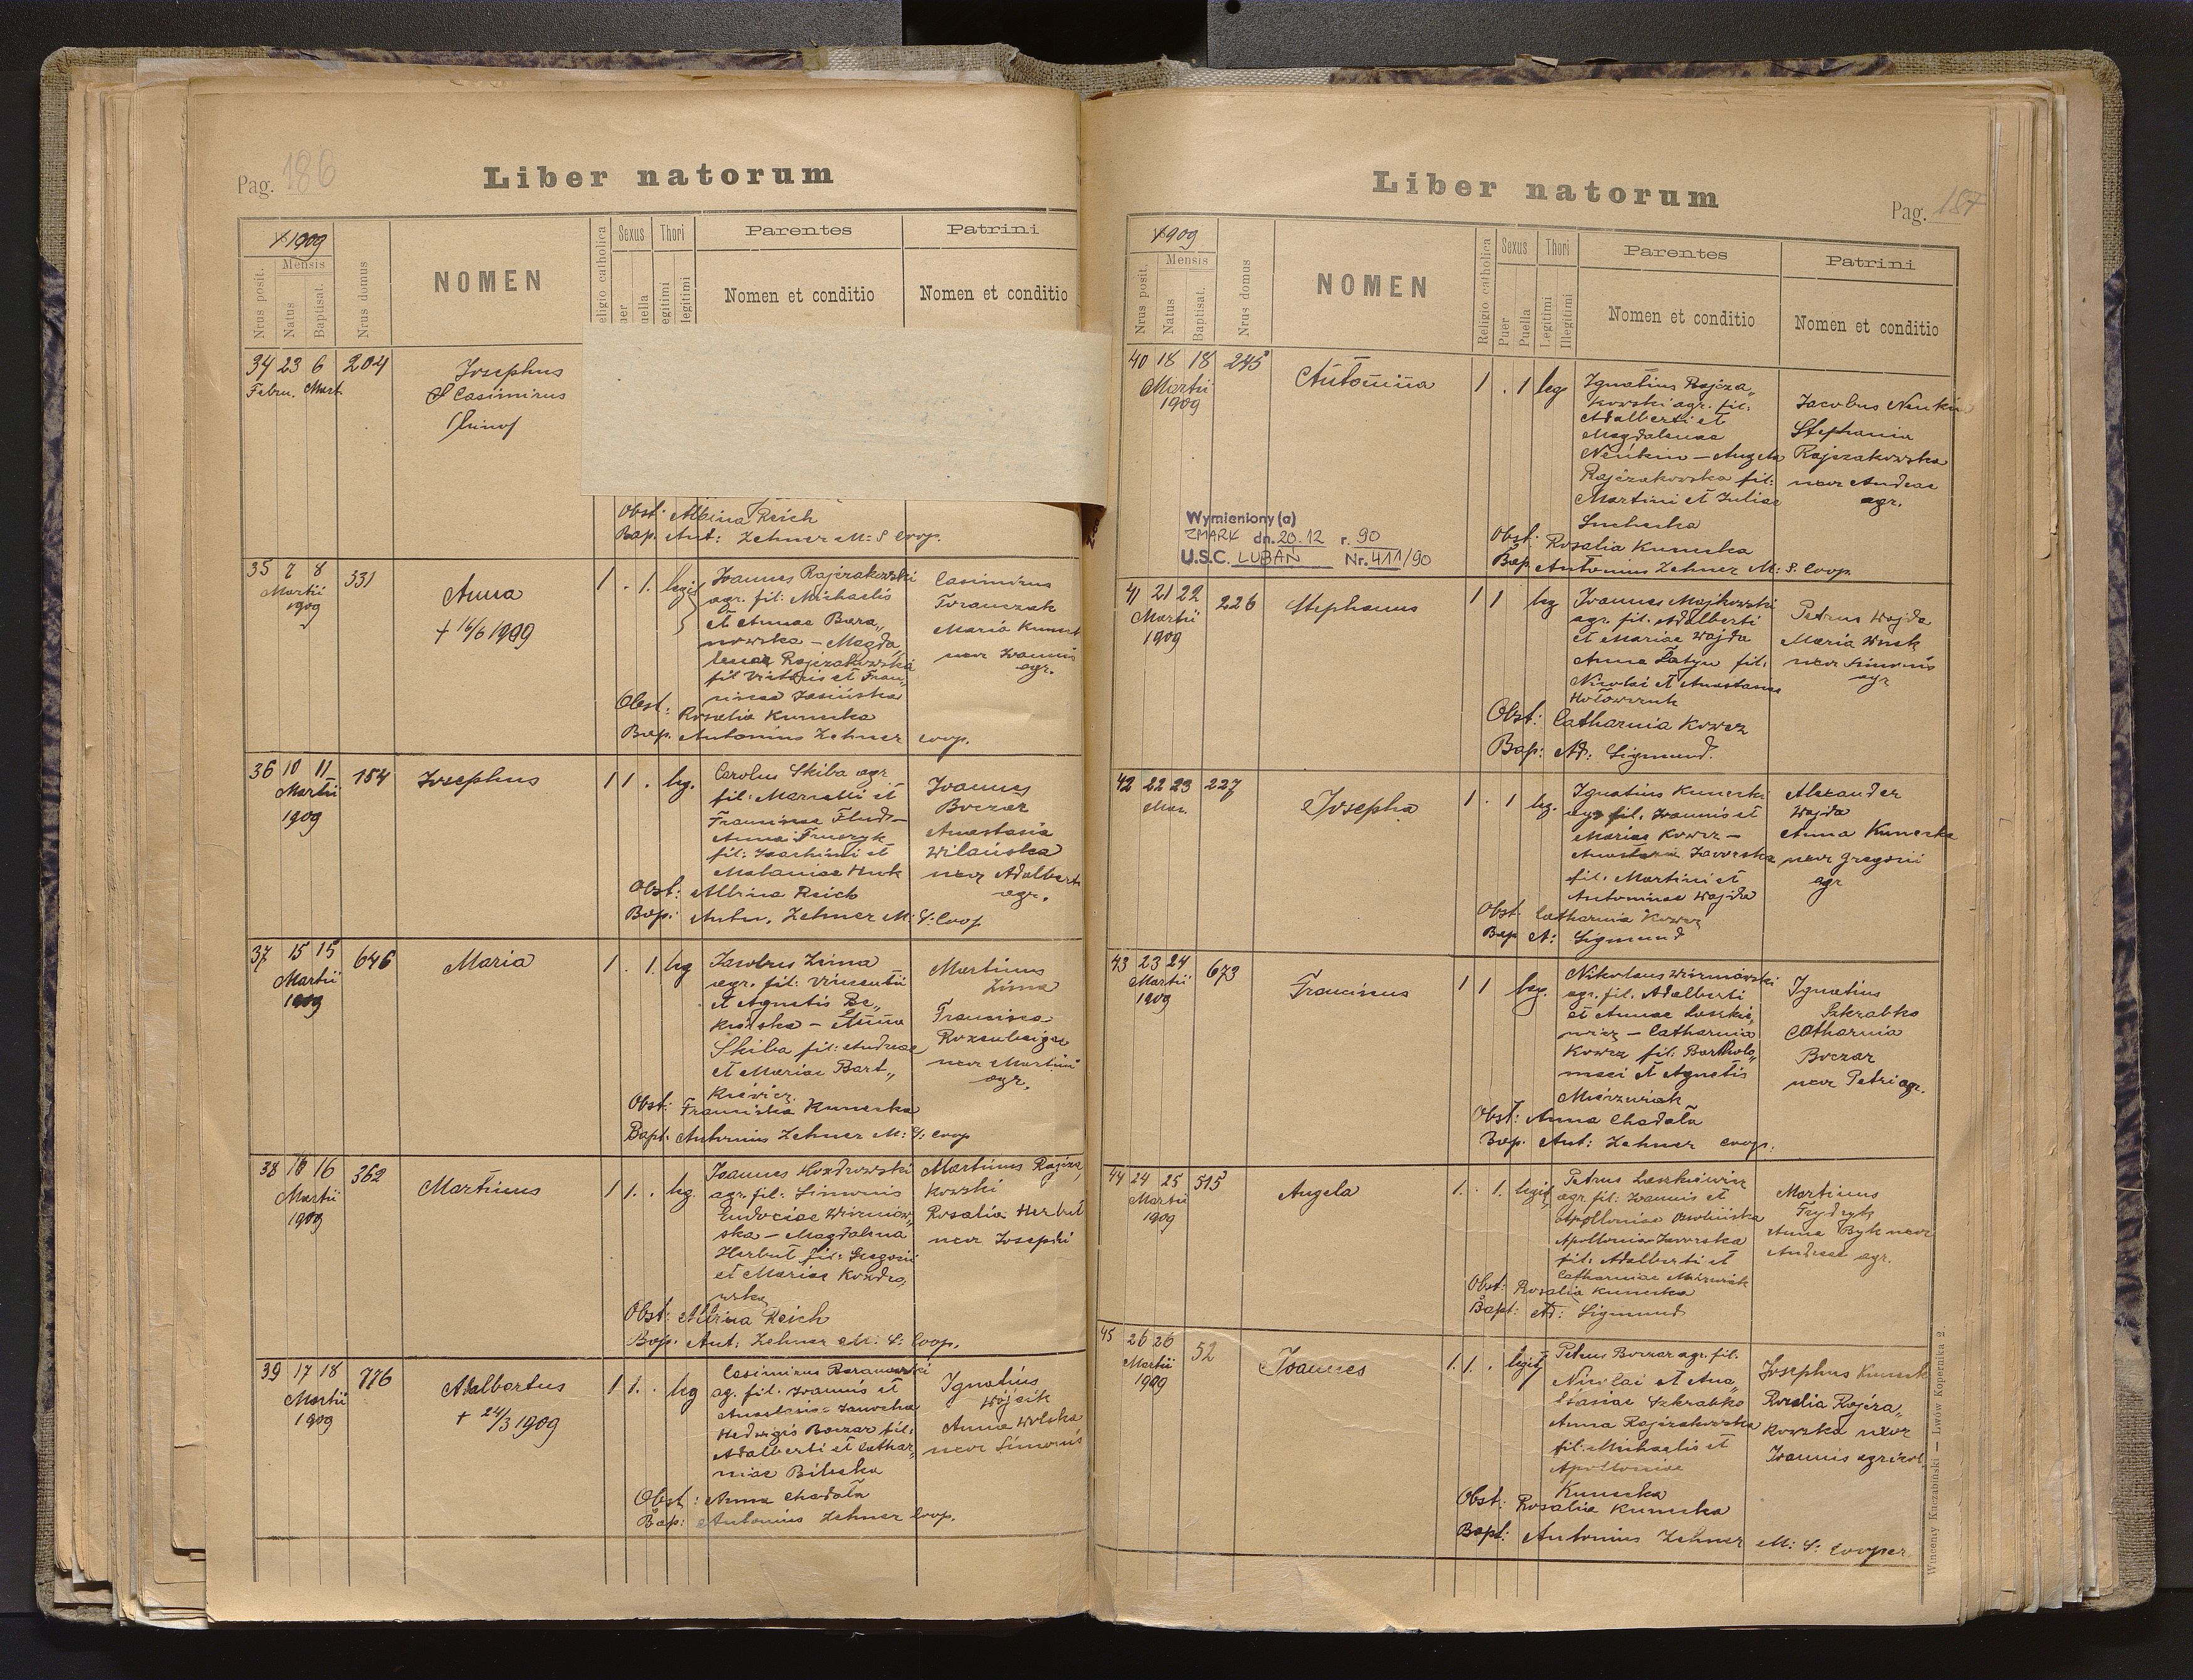 Pag. 186
Liber natorum
1909
Nrus posit.
Mensis
Natus
Baptisat.
Nrus domus
NOMEN
Religio catholica
Sexus
Thori
Parentes
Nomen et conditio
Patrini
Nomen et conditio
34 23 6 204
Febru. Mart.
Josephus
Casimirus
Obst: Albina Reich
Bap. Ant: Zehner M: S coop.
35 7 8 331
Martii
1909
Anna
+ 16/6 1909
1 . 1. legit
Joannes Rajczakowski
agr. fil: Michaelis
et Annae Bara„
nowska – Magda„
lena Rajczakowska
fil Victoris et Fran„
ciscae Jasińska
Casimirus
Franczak
Maria Kunest
uxor Joannis
agr.
Obst: Rosalia Kunecka
Bap. Antonius Zehner coop.
36 10 11 154
Martii
1909
Josephus
1 1 . leg.
Carolus Skiba agr
fil: Marcelli et
Franciscae Flud–
Anna
fil: Joachimi et
Melaniae Huk
Joannes
Boczar
Anastasia
Wilańska
uxor Adalberti
agr.
Obst: Albina Reich
Bap: Anton. Zehner M: S: Coop
37 15 15 646
Martii
1909
Maria
1 . 1. leg
Jacobus Zima
agr. fil: Vincentii
et Agnetis Be„
– Anna
Skiba fil: Andreae
et Mariae Bart„
kiewicz.
Martinus
Zima
Francisca
Rozenbeiger
uxor Martini
agr.
Obst: Franciska Kunecka
Bapt: Antonius Zehner M: S: coop
38 16 16 362
Martii
1909
Martinus
1 1 . leg.
Joannes Kondrowski
agr. fil: Simonis
Eudociae Wiśniow„
ska – Magdalena
Herbut fil: Gregorii
et Mariae Kondro„
wska
Martinus Rajcza„
kowski
Rosalia Herbut
uxor Josephi
Obst: Albina Reich
Bap: Ant: Zehner M: S: Coop.
39 17 18 776
Martii
1909
Adalbertus
+ 24/3 1909
1 1 . leg
Casimirus Baranowski
ag. fil. Joannis et
Hedwigis Boczar fil:
Adalberti et Cathar„
inae Bileska
Ignatius
Wójcik
Anna Wolska
uxor Simonis
Obst: Anna Chadała
Bap: Antonius Zehner Coop.
Liber natorum
Pag. 187
1909
Nrus posit.
Mensis
Natus
Baptisat.
Nrus domus
NOMEN
Religio catholica
Sexus
Puer
Puella
Thori
Legitimi
Illegitimi
Parentes
Nomen et conditio
Patrini
Nomen et conditio
40 18 18 245
Martii
1909
Antonina
1 . 1 leg
Ignatius Rajcza„
kowski agr. fil:
Adalberti et
Magdalenae
Neńkin – Angela
Rajczakowska fil:
Martini et Juliae
Suchecka
Jacobus Neńkin
Stephania
Rajczakowska
uxor Andreae
agr.
Wymieniony (a)
ZMARŁ dn. 20.12 r. 90
U.S.C. LUBAŃ Nr. 411/90
Obst: Rosalia Kunecka
Bap. Antonius Zehner M: S. Coop.
41 21 22 226
Martii
1909
Stephanus
1 1 leg
Joannes Majkowski
agr. fil: Adalberti
et Mariae Wajda
Anna Fatyn fil:
Nicolai et Anastasiae
Hołowczuk
Petrus Wajda
Maria Wnuk
uxor Simonis
agr
Obst: Catharina Kowcz
Bap: Ad: Sigmund.
42 22 23 227
Mar.
Josepha
1 . 1 leg.
Ignatius Kunecki
agr fil. Joannis et
Mariae Kowcz –
Anastasia Jaworska
fil. Martini et
Antoninae Wajda
Alexander
Wajda
Anna Kunecka
uxor Gregorii
agr
Obst. Catharina Kowcz
Bap A: Sigmund
43 23 24 673
Martii
1909
Franciscus
1 1 leg.
Nikolaus Wiśniowski
agr. fil. Adalberti
et Annae Laszkie„
wicz – Catharina
Kowcz fil: Bartholo„
maei et Agnetis
Mierzwiak
Ignatius
Szkrabko
Catharina
Boczar
uxor Petri agr.
Obst: Anna Chadała
Bap. Ant: Zehner coop.
44 24 25 515
Martii
1909
Angela
1. . 1. legit
Petrus Laszkiewicz
agr. fil: Joannis et
Apolloniae
Apollonia Jaworska
fil: Adalberti et
Catharinae Mierzwiak
Martinus
Frydryk
Anna Byk uxor
Andreae agr.
Obst: Rosalia Kunecka
Bapt: Ad: Sigmund
45 26 26 52
Martii
1909
Joannes
1. 1. . legit
Petrus Boczar agr. fil.
Nicolai et Ana„
stasiae Szkrabko
Anna Rajczakowska
fil: Michaelis et
Apolloniae
Kunecka
Josephus Kunecki
Rosalia Rajcza„
kowska uxor
Joannis agricol.
Obst: Rosalia Kunecka
Bapt: Antonius Zehner M: S: cooper
Wincenty Kuczabiński — Lwów Kopernika 2.